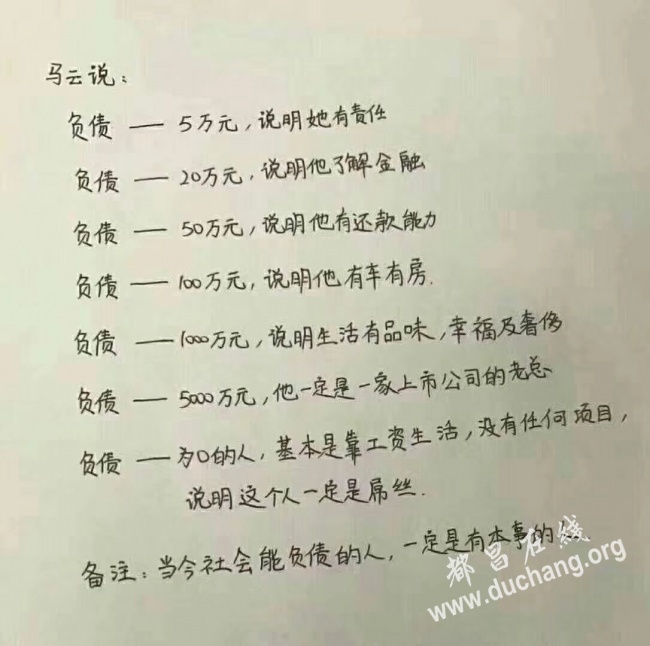 马云说：
负债 — 5万元，说明她有责任
负债 — 20万元，说明他了解金融
负债 — 50万元，说明他有还款能力
负债 — 100万元，说明他有车有房.
负债 — 1000万元，说明生活有品味，幸福及奢侈
负债 — 5000万元，他一定是一家上市公司的老总
负债 — 为0的人，基本是靠工资生活，没有任何项目，
说明这个人一定是屌丝.
备注：当今社会能负债的人，一定是有本事的人
都昌在线
www.duchang.org